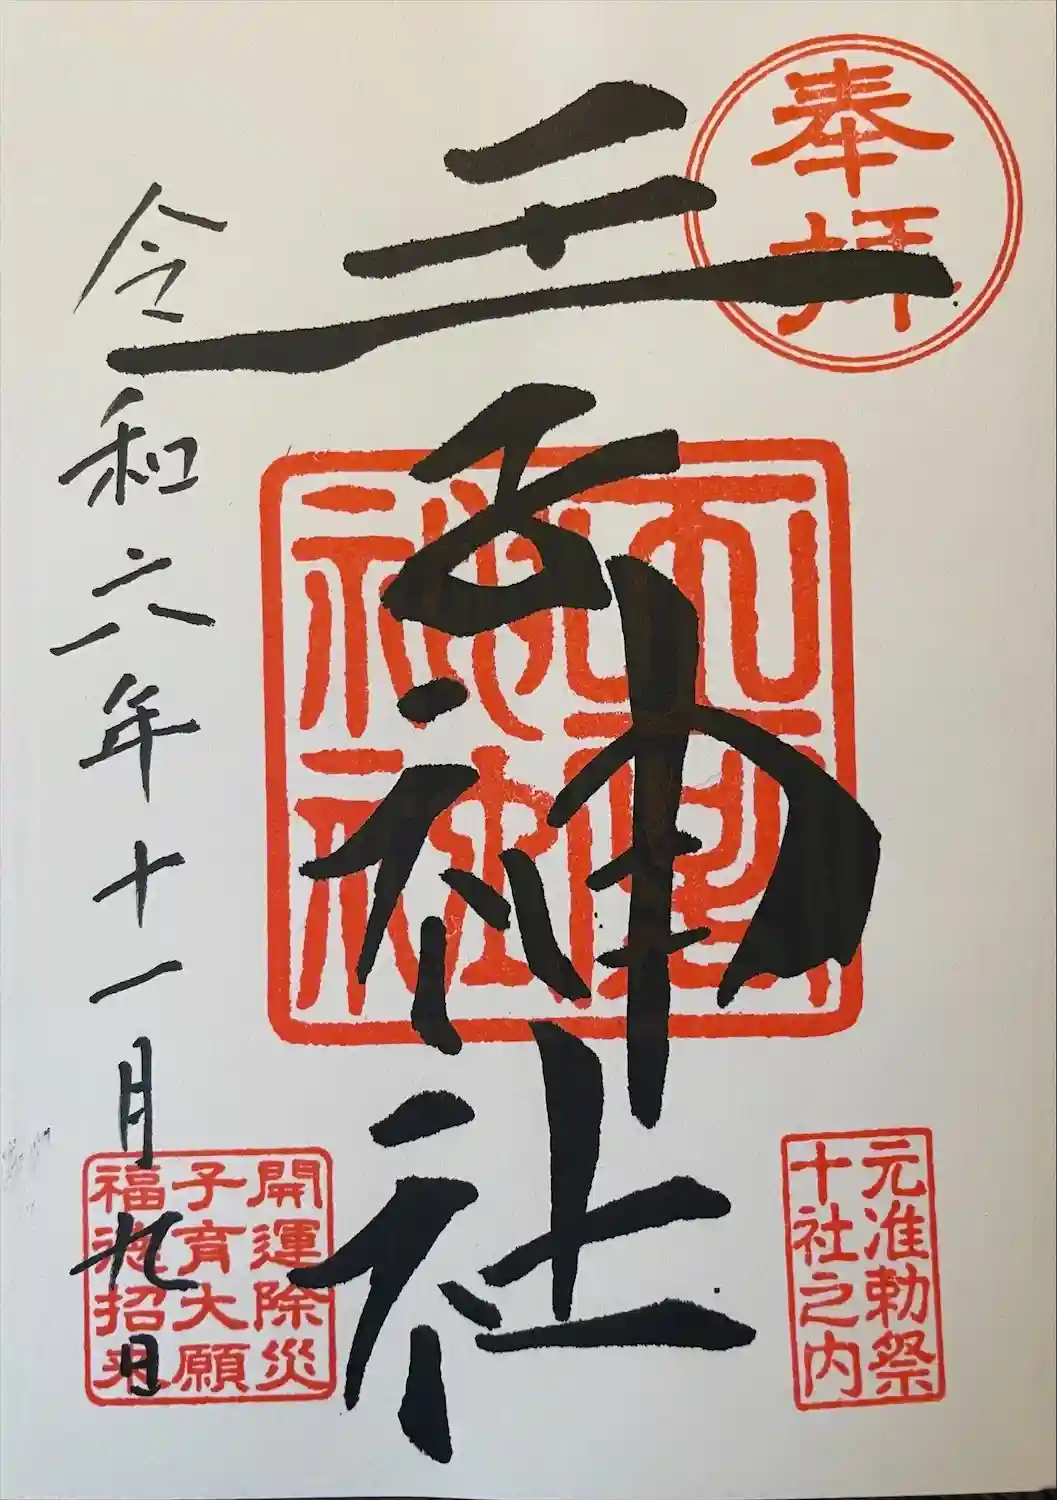 奉拝
元准勅祭
十社之内
王子神社
開運除災
子育大願
福徳招来
令和六年十一月九日